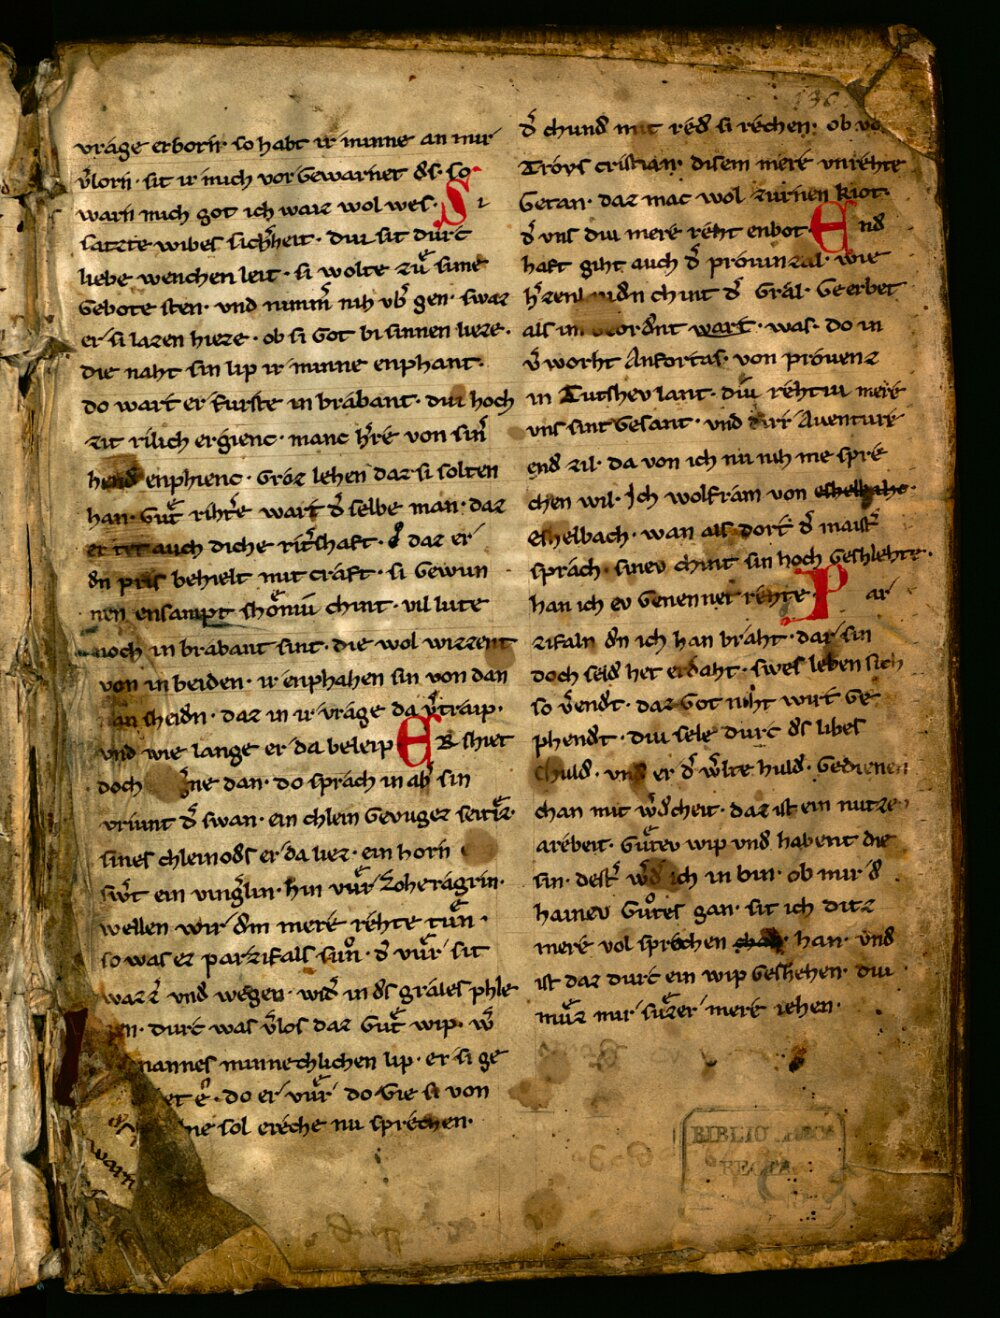 vrage erborn so habt ir minne an mir
v̄lorn · sit ir mich vor gewarnet ds · so
warn mich got ich waiz wol wes · Si
satzte wibes sichheit · diu sit durc
liebe wenchen leit · si wolte zuͤ sime
gebote sten · und nimm̄ nih vb̄ gen · swaz
er si lazen hieze · ob si got bi sinnen lieze ·
die naht sin lip ir minne enphant ·
do wart er furste in brabant · diu hoch
zit rilich ergienc · manc h̄re von sin̄
hend enphienc · groz lehen daz si solten
han · guͤt riht̄e wart d̄ selbe man · daz
er tet auch diche rit̄shaft · daz er
dn pris behielt mit craft · si gewun
nen ensampt shoͤniu chint · vil lute
noch in brabant sint · die wol wizzent
von in beiden · ir enphahen sin von dan
sheidn · daz in ir vrage da v̄traip ·
und wie lange er da beleip · ER shiet
doch ne dan · do sprach in ab̄ sin
vriunt d̄ swan · ein chlein gevuger seit
sines chleinods er da liez · ein horn
sw̄t ein vinḡlin · hin vuͤr Loheragrin ·
wellen wir dm mere rehte tuͤn ·
so was er parzifals suͦn · d̄ vuͤr sit
wazz̄ und wegen · wid̄ in ds grales phle
durc was v̄los daz guͤt wip · w̄
mannes minnechlichen lip · er si ge
et e · do er vuͤr do gie si von
ne sol ereche nu sprechen ·
d̄ chund mit red si rechen · ob vo
Troys cristian · disem mere unrehte
getan · daz mac wol zurnen kiot ·
d̄ uns diu mere reht enbot · End
haft giht auch d̄ provinzal · wie
h̄zenl chint d̄ gral · geerbet
als im geordnt wart · was · do in
v̄worht Anfortas · von provenz
in Tutshev lant · diu rehtiu mere
uns sint gesant · und dirr Aventure
end zil · da von ich nu nih me spre
chen wil · Ich wolfram von
eshelbach · wan als dort d̄ maist̄
sprach · sinev chint sin hoch geshlehte ·
han ich ev genennet rehte · Par
zifaln dn ich han braht · dar sin
doch seld het erdaht · swes leben sich
so v̄endt · daz got niht wirt ge
phendt · diu sele durc ds libes
shuld · und er d̄ w̄lte huld · gedienen
chan mit w̄dcheit · daz ist ein nutze
arebeit · guͤtev wip und habent die
sin · dest̄ w̄d ich in bin · ob mir d
hainev guͦtes gan · sit ich ditz
mere vol sprochen han · und
ist daz durc ein wip geshehen · diu
muͤz mir suͤzer mere iehen ·
BIBLIOTHECA
REGIA